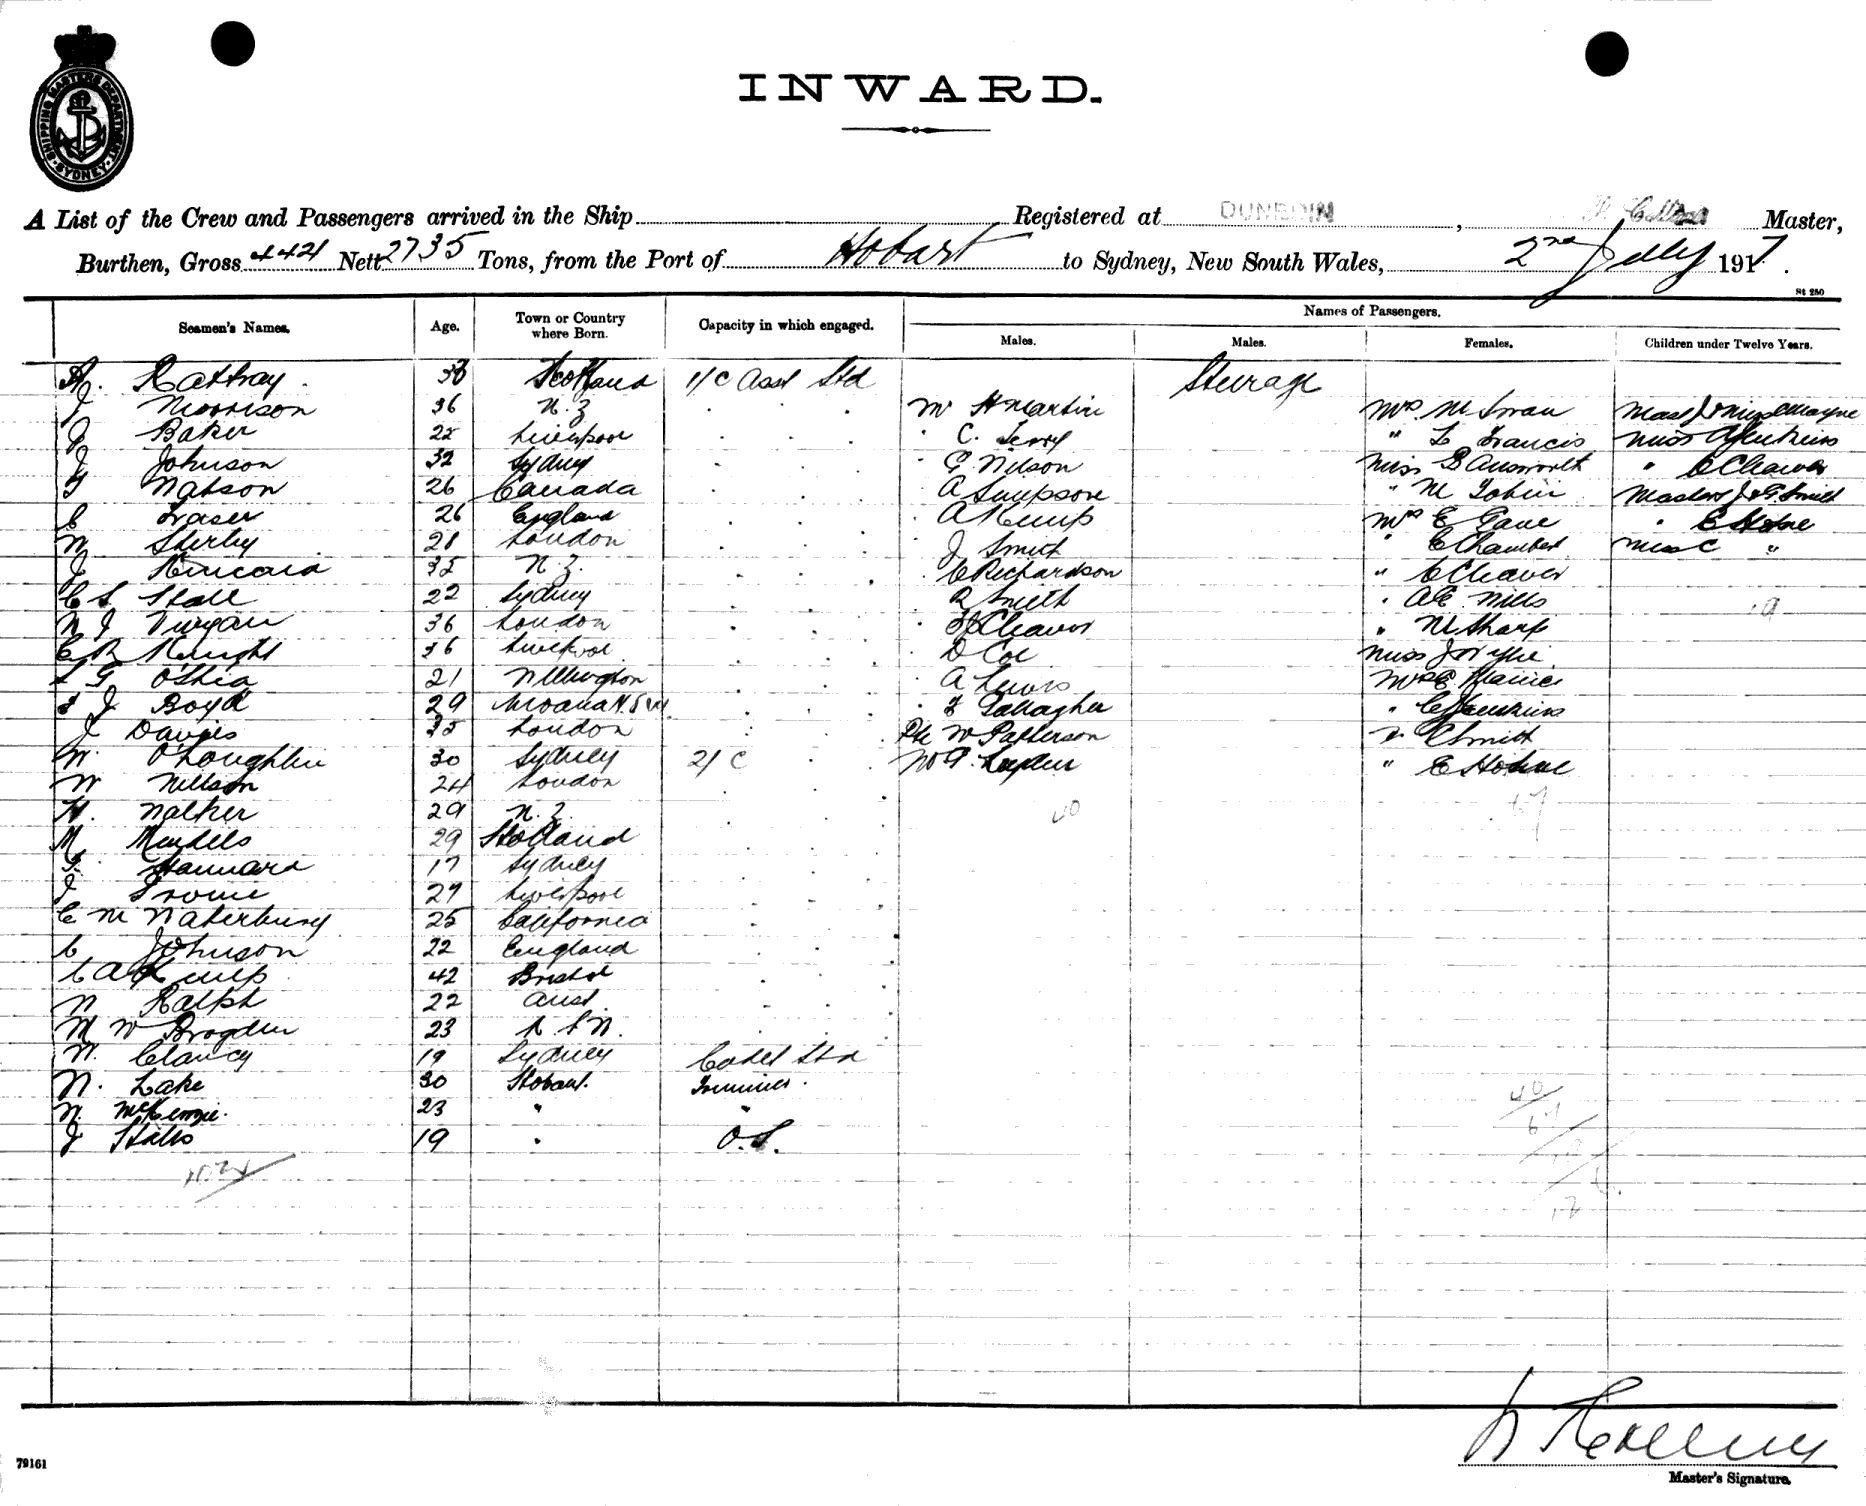 SHIPPING MASTERS DEPARTMENT
SYDNEY
INWARD.
A List of the Crew and Passengers arrived in the Ship Registered at DUNEDIN , Master,
Burthen, Gross 4421 Nett 2735 Tons, from the Port of Hobart to Sydney, New South Wales, 2nd July 1917.
St 250
Seamen's Names. Age. Town or Country where Born. Capacity in which engaged. Names of Passengers.
Males. Males. Females. Children under Twelve Years.
A. Rattray. Scotland 1/C Asst Std Steerage
J Morrison 36 N.Z Mr H Martin Mrs. M Swan
J Baker 22 Liverpool " C. Terry " L Francis Miss A Jenkins
J Johnson 32 Sydney " G. Nilson Miss B Ausworth " C Cleaver
G Watson 26 Canada " A Simpson " M Tobin Masters J & G Smith
C Fraser 26 England " A Kemp Mrs E Gane " E Hohne
W Sherby 21 London " J Smith " E Chambers Miss C "
J Kincaid 35 N.Z. " C Richardson " C Cleaver
C S Hall 22 Sydney " R Smith " A E. Mills
W J 36 London " Cleaver " M Sharp
C R Knight 36 Liverpool " D Coe Miss J Wylie
G O'Shea 21 Wellington " A Lewis Mrs E
J Boyd 29 Moana N.S.W. " F Gallagher " C Jenkins
J Davies 35 London Pte W Patterson " C Smith
W. O'Loughlin 30 Sydney 2/C Mr " E Hohne
W Nillson 24 London
H. Walker 29 N.Z. 40
M. Mendels 29 Holland
F. Hannard 17 Sydney
J Irvine 29 Liverpool
C M Waterbury 25 California
C Johnson 22 England
C A Kemp 42 Bristol
W Ralph 22 Aust.
M W Brogden 23
W. Clancy 19 Sydney Cadet Std
W. Lake 30 Hobart. Trimmer.
W. McKenzie. 23 " "
J Halls 19 " O.S.
79161
Master's Signature.